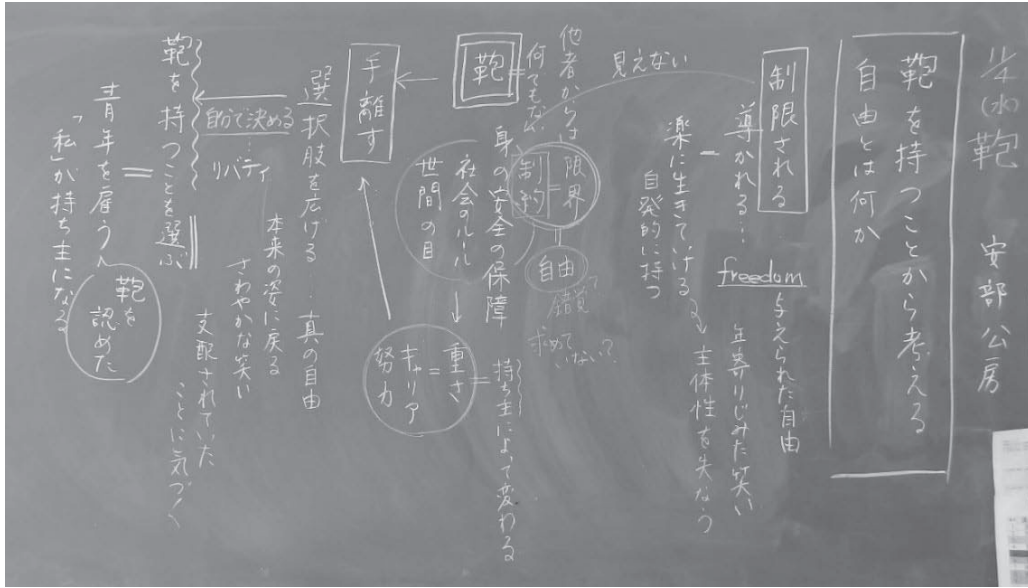 11/4(水) 鞄 安部公房
鞄を持つことから考える
自由とは何か
制限される
導かれる…
楽に生きていける
自発的に持つ
freedom
与えられた自由
年寄りじみた笑い
主体性を失なう
見えない
他者からは
何でもない
鞄
限界
=
制約
自由
錯覚?
求めて
いない?
身の安全の保障
社会のルール
世間の目
重さ
=
キャリア
努力
= 持ち主によって変わる
手離す
選択肢を広げる…真の自由
自分で決める
リバティ
本来の姿に戻る
さわやかな笑い
支配されていた
ことに気づく
鞄を持つことを選ぶ
=
青年を雇う
鞄を
認めた
「私」が持ち主になる